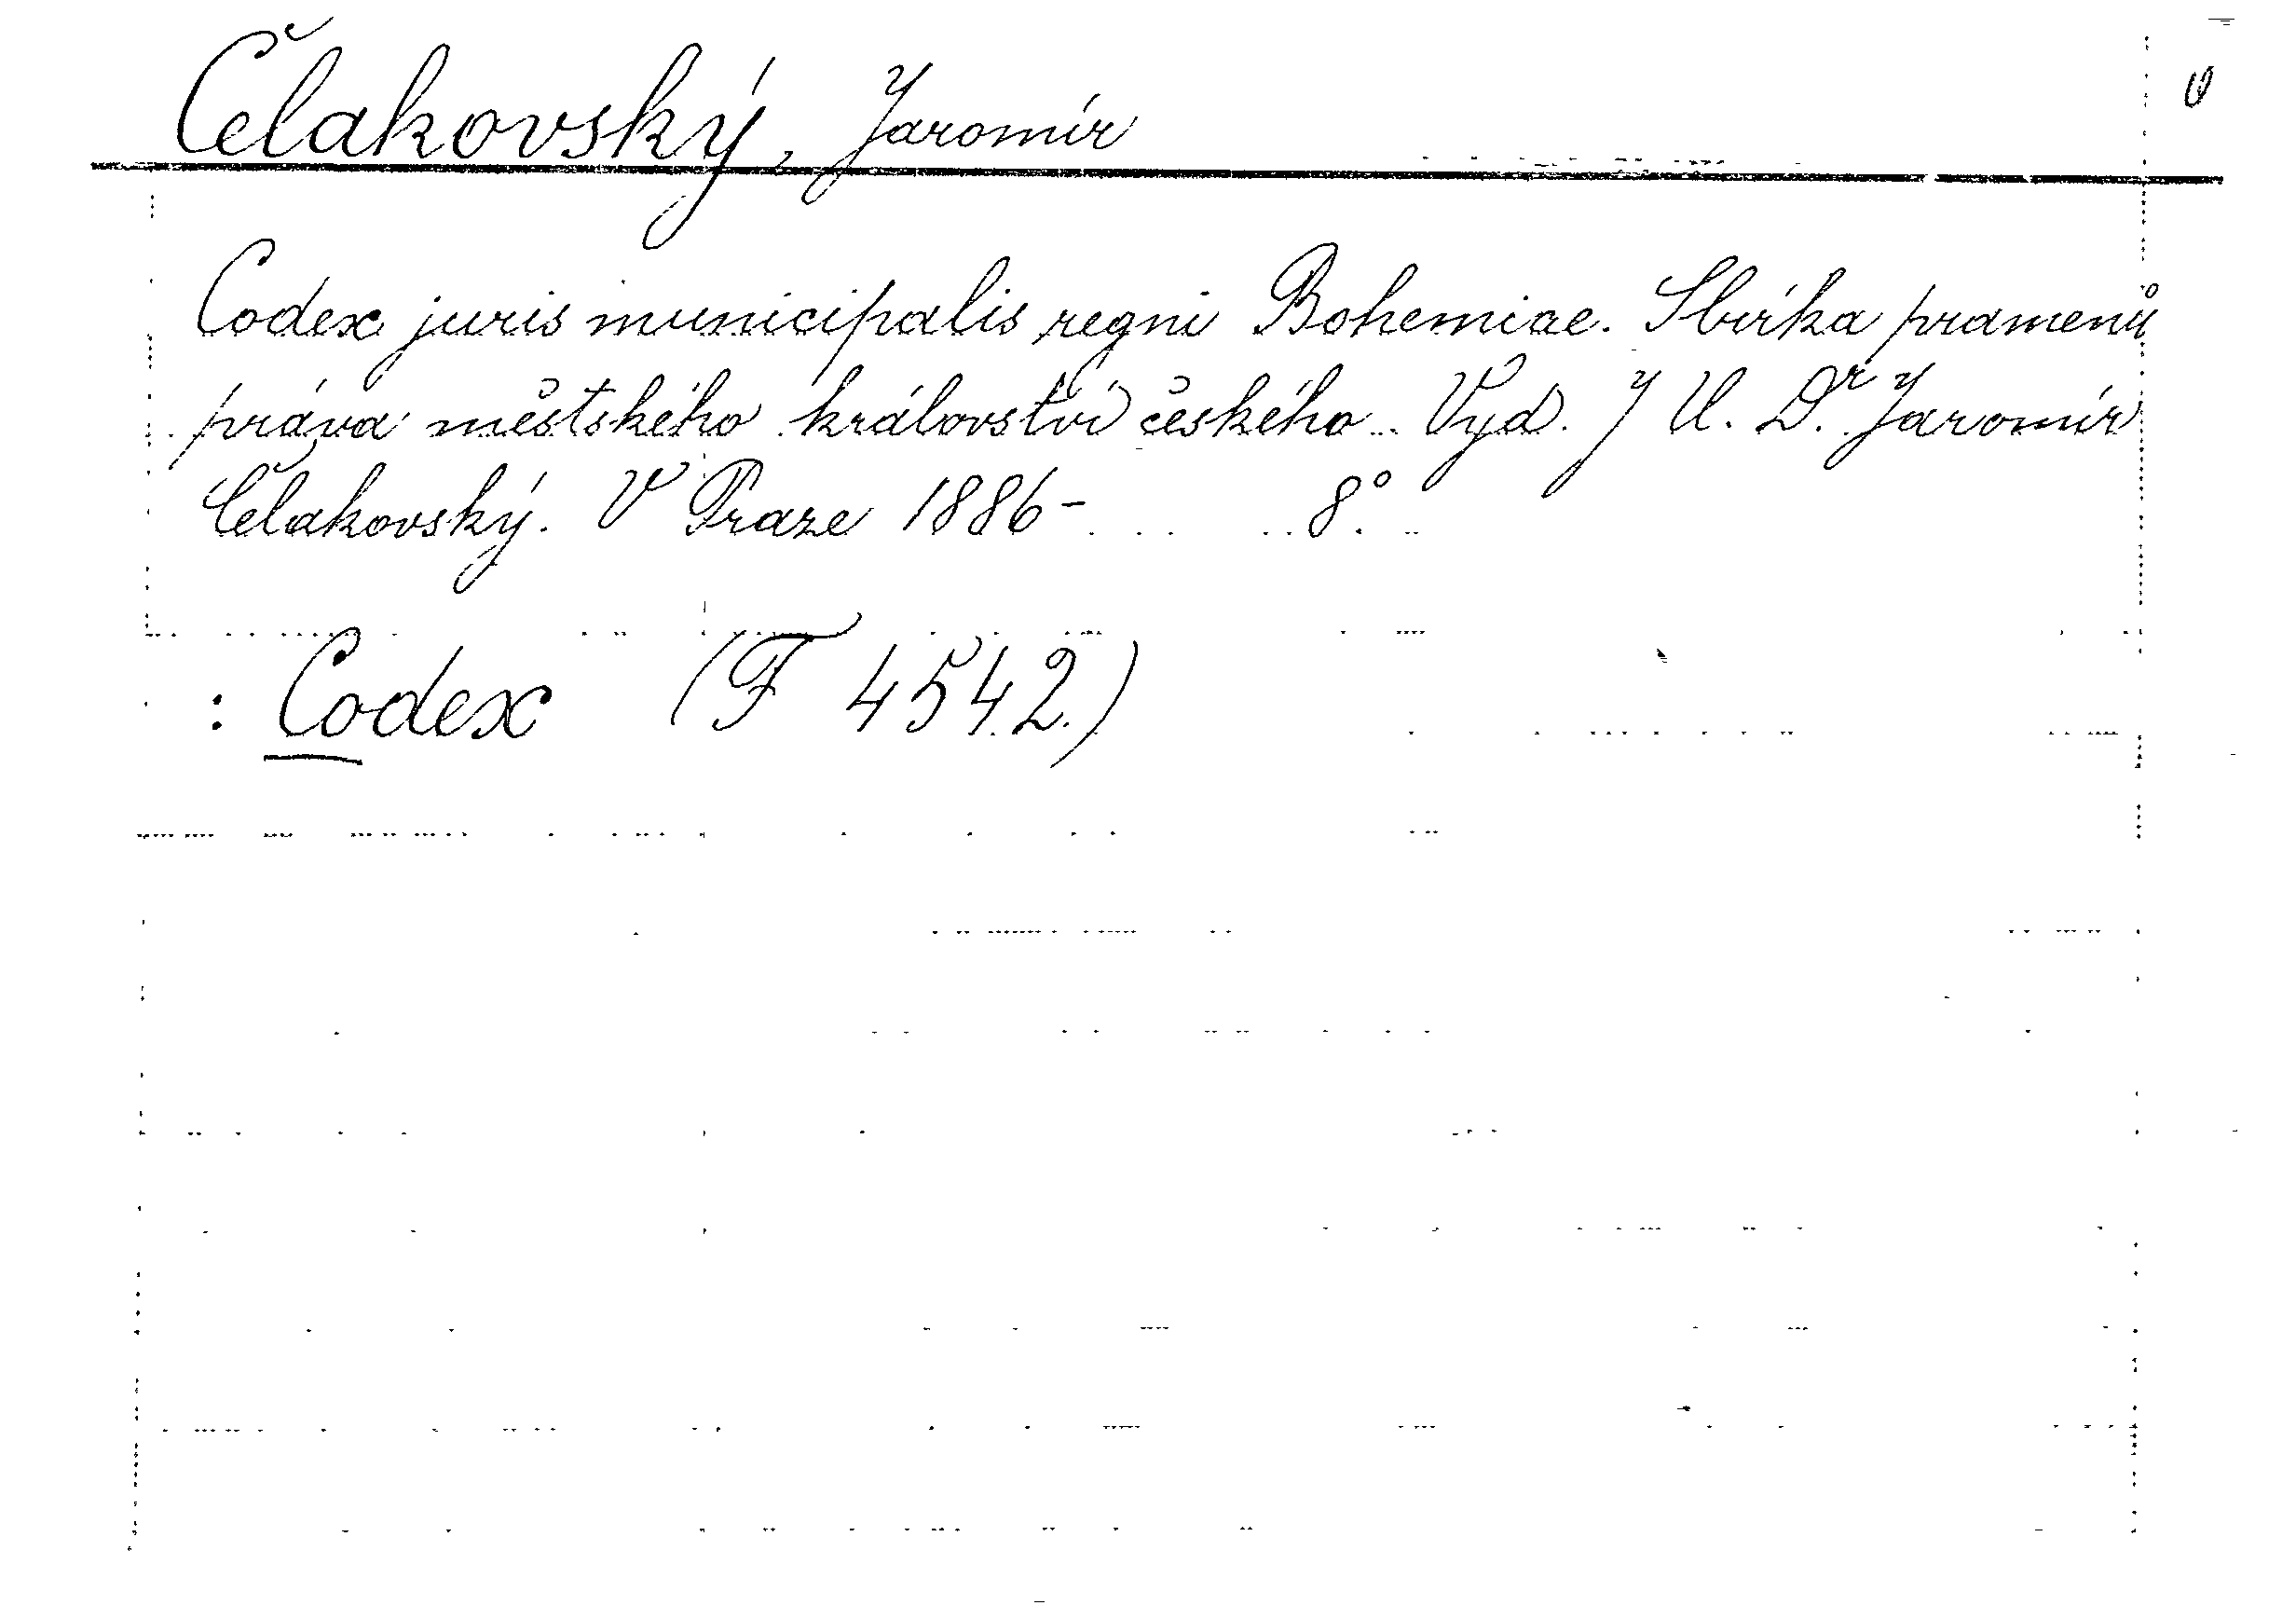 Čelakovský, Jaromír
Codex juris municipalis regni Bohemiae. Sbírka pramenů
práva městského království českého. Vyd. J U. Dr. Jaromír
Čelakovský. V Praze 1886- 8°.
: Codex (F 4542.)